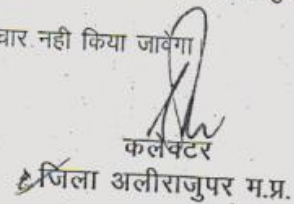 चार नही किया जावेगा
कलेक्टर
जिला अलीराजुपर म.प्र.